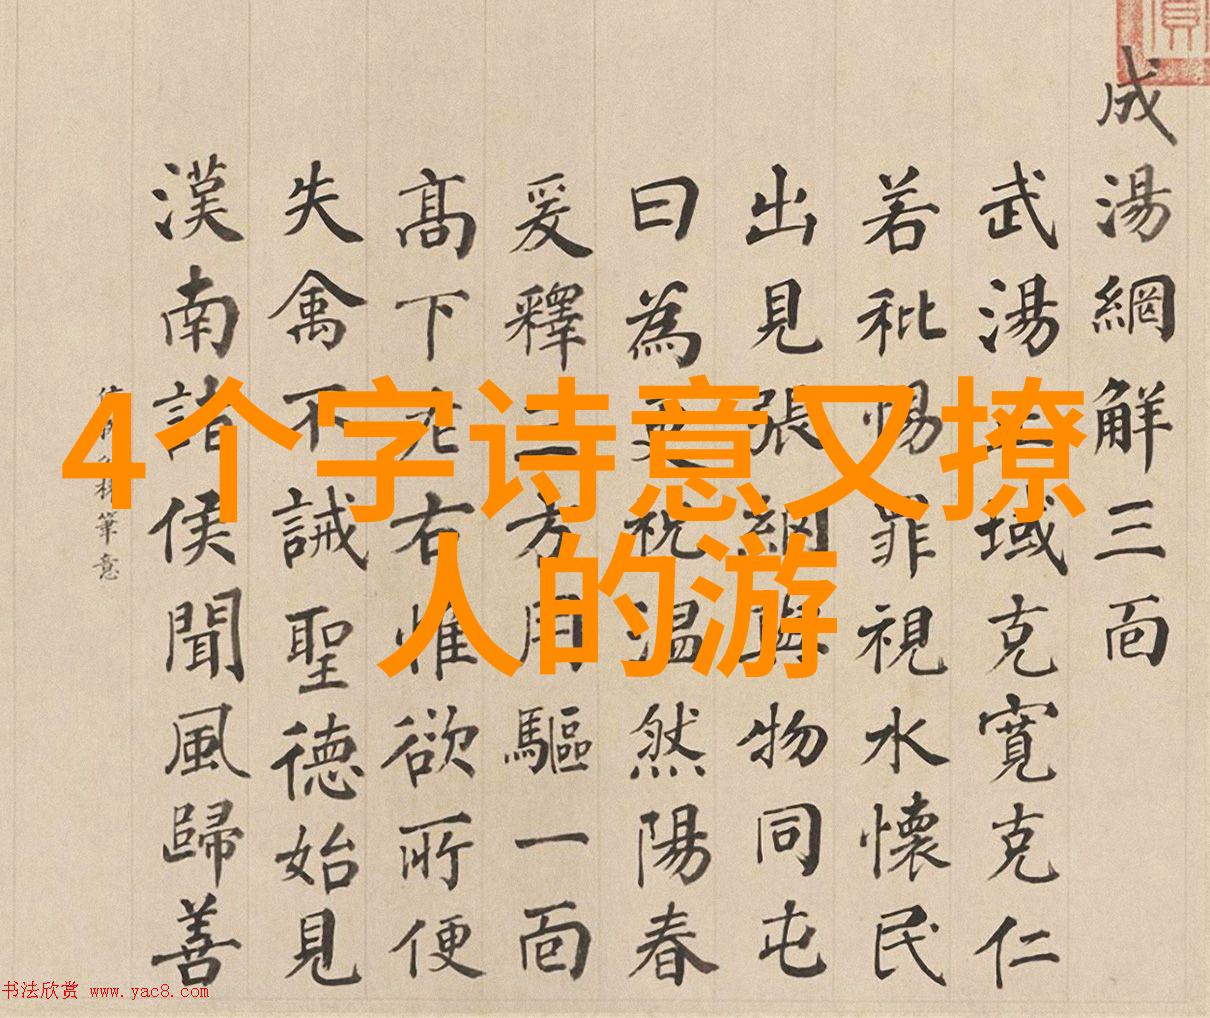 4个字诗意又撩
人的游
成湯網解三面
武湯域克寬克仁
若秕惕罪視水懷民
出見張網與物同屯
曰為更祝温然陽春
爰釋三方用驅一面
高下左右惟欲所便
失禽不誡聖德始見
漢南諸侯聞風歸善
筆意
书法欣赏 www.yac8.com